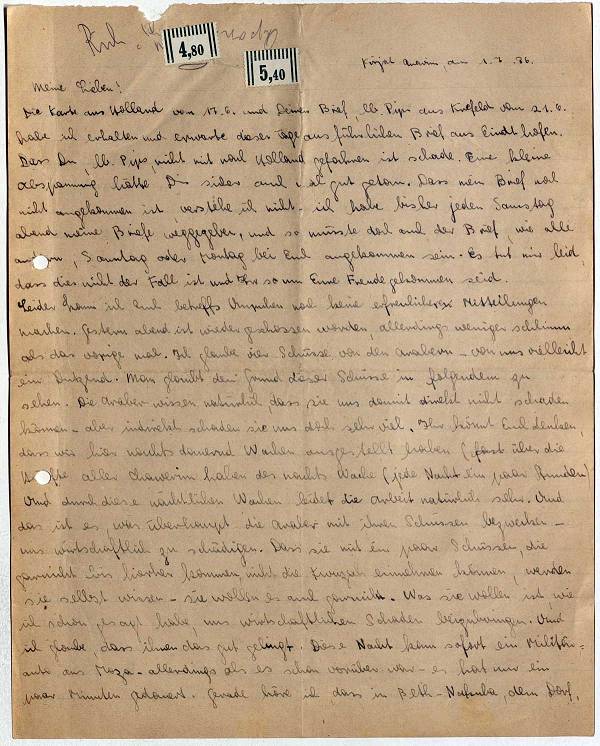 4,80
5,40
Kirjat Anavim, am 1.7.36.
Meine Lieben!
Die Karte aus Holland vom 17.6. und Deinen Brief, lb. Pips aus Krefeld vom 21.6.
habe ich erhalten und erwarte dieser Tage ausführlichen Brief aus Eindhofen.
Dass Du, lb. Pips, nicht mit nach Holland gefahren ist schade. Eine kleine
Abspannung hätte Dir sicher auch mal gut getan. Dass mein Brief noch
nicht angekommen ist, verstehe ich nicht. ich habe bisher jeden Samstag
abend meine Briefe weggegeben, und so müsste doch auch der Brief, wie alle
andern, Sonntag oder Montag bei Euch angekommen sein. Es tut mir leid,
dass dies nicht der Fall ist und Ihr so um Eure Freude gekommen seid.
Leider kann ich Euch betreffs Unruhen noch keine erfreulicheren Mitteilungen
machen. Gestern abend ist wieder geschossen worden, allerdings weniger schlimm
als das vorige mal. Ich glaube vier Schüsse von den Arabern - von uns vielleicht
ein Dutzend. Man glaubt den Grund dieser Schüsse in folgendem zu
sehen. Die Araber wissen natürlich dass sie uns damit direkt nicht schaden
können - aber indirekt schaden sie uns doch sehr viel. Ihr könnt Euch denken,
dass wir hier nachts dauernd Wachen ausgestellt haben (fast über die
Hälfte aller Chawerim haben des nachts Wache (jede Nacht ein paar Stunden)
Und durch diese nächtlichen Wachen leidet die Arbeit natürlich sehr. Und
das ist es, was überhaupt die Araber mit ihren Schüssen bezwecken -
uns wirtschaftlich zu schädigen. Dass sie mit ein paar Schüssen, die
garnicht bis hierher kommen, nicht die Kwuzah einnehmen können, werden
sie selbst wissen - sie wollen es auch garnicht. Was sie wollen ist, wie
ich schon gesagt habe, uns wirtschaftlichen Schaden beizubringen. Und
ich glaube, dass ihnen das gut gelingt. Diese Nacht kam sofort ein Militär-
auto aus Moza - allerdings als es schon vorüber war - es hat nur ein
paar Minuten gedauert. Gerade höre ich, dass in Beth-Nakuba, dem Dorf,